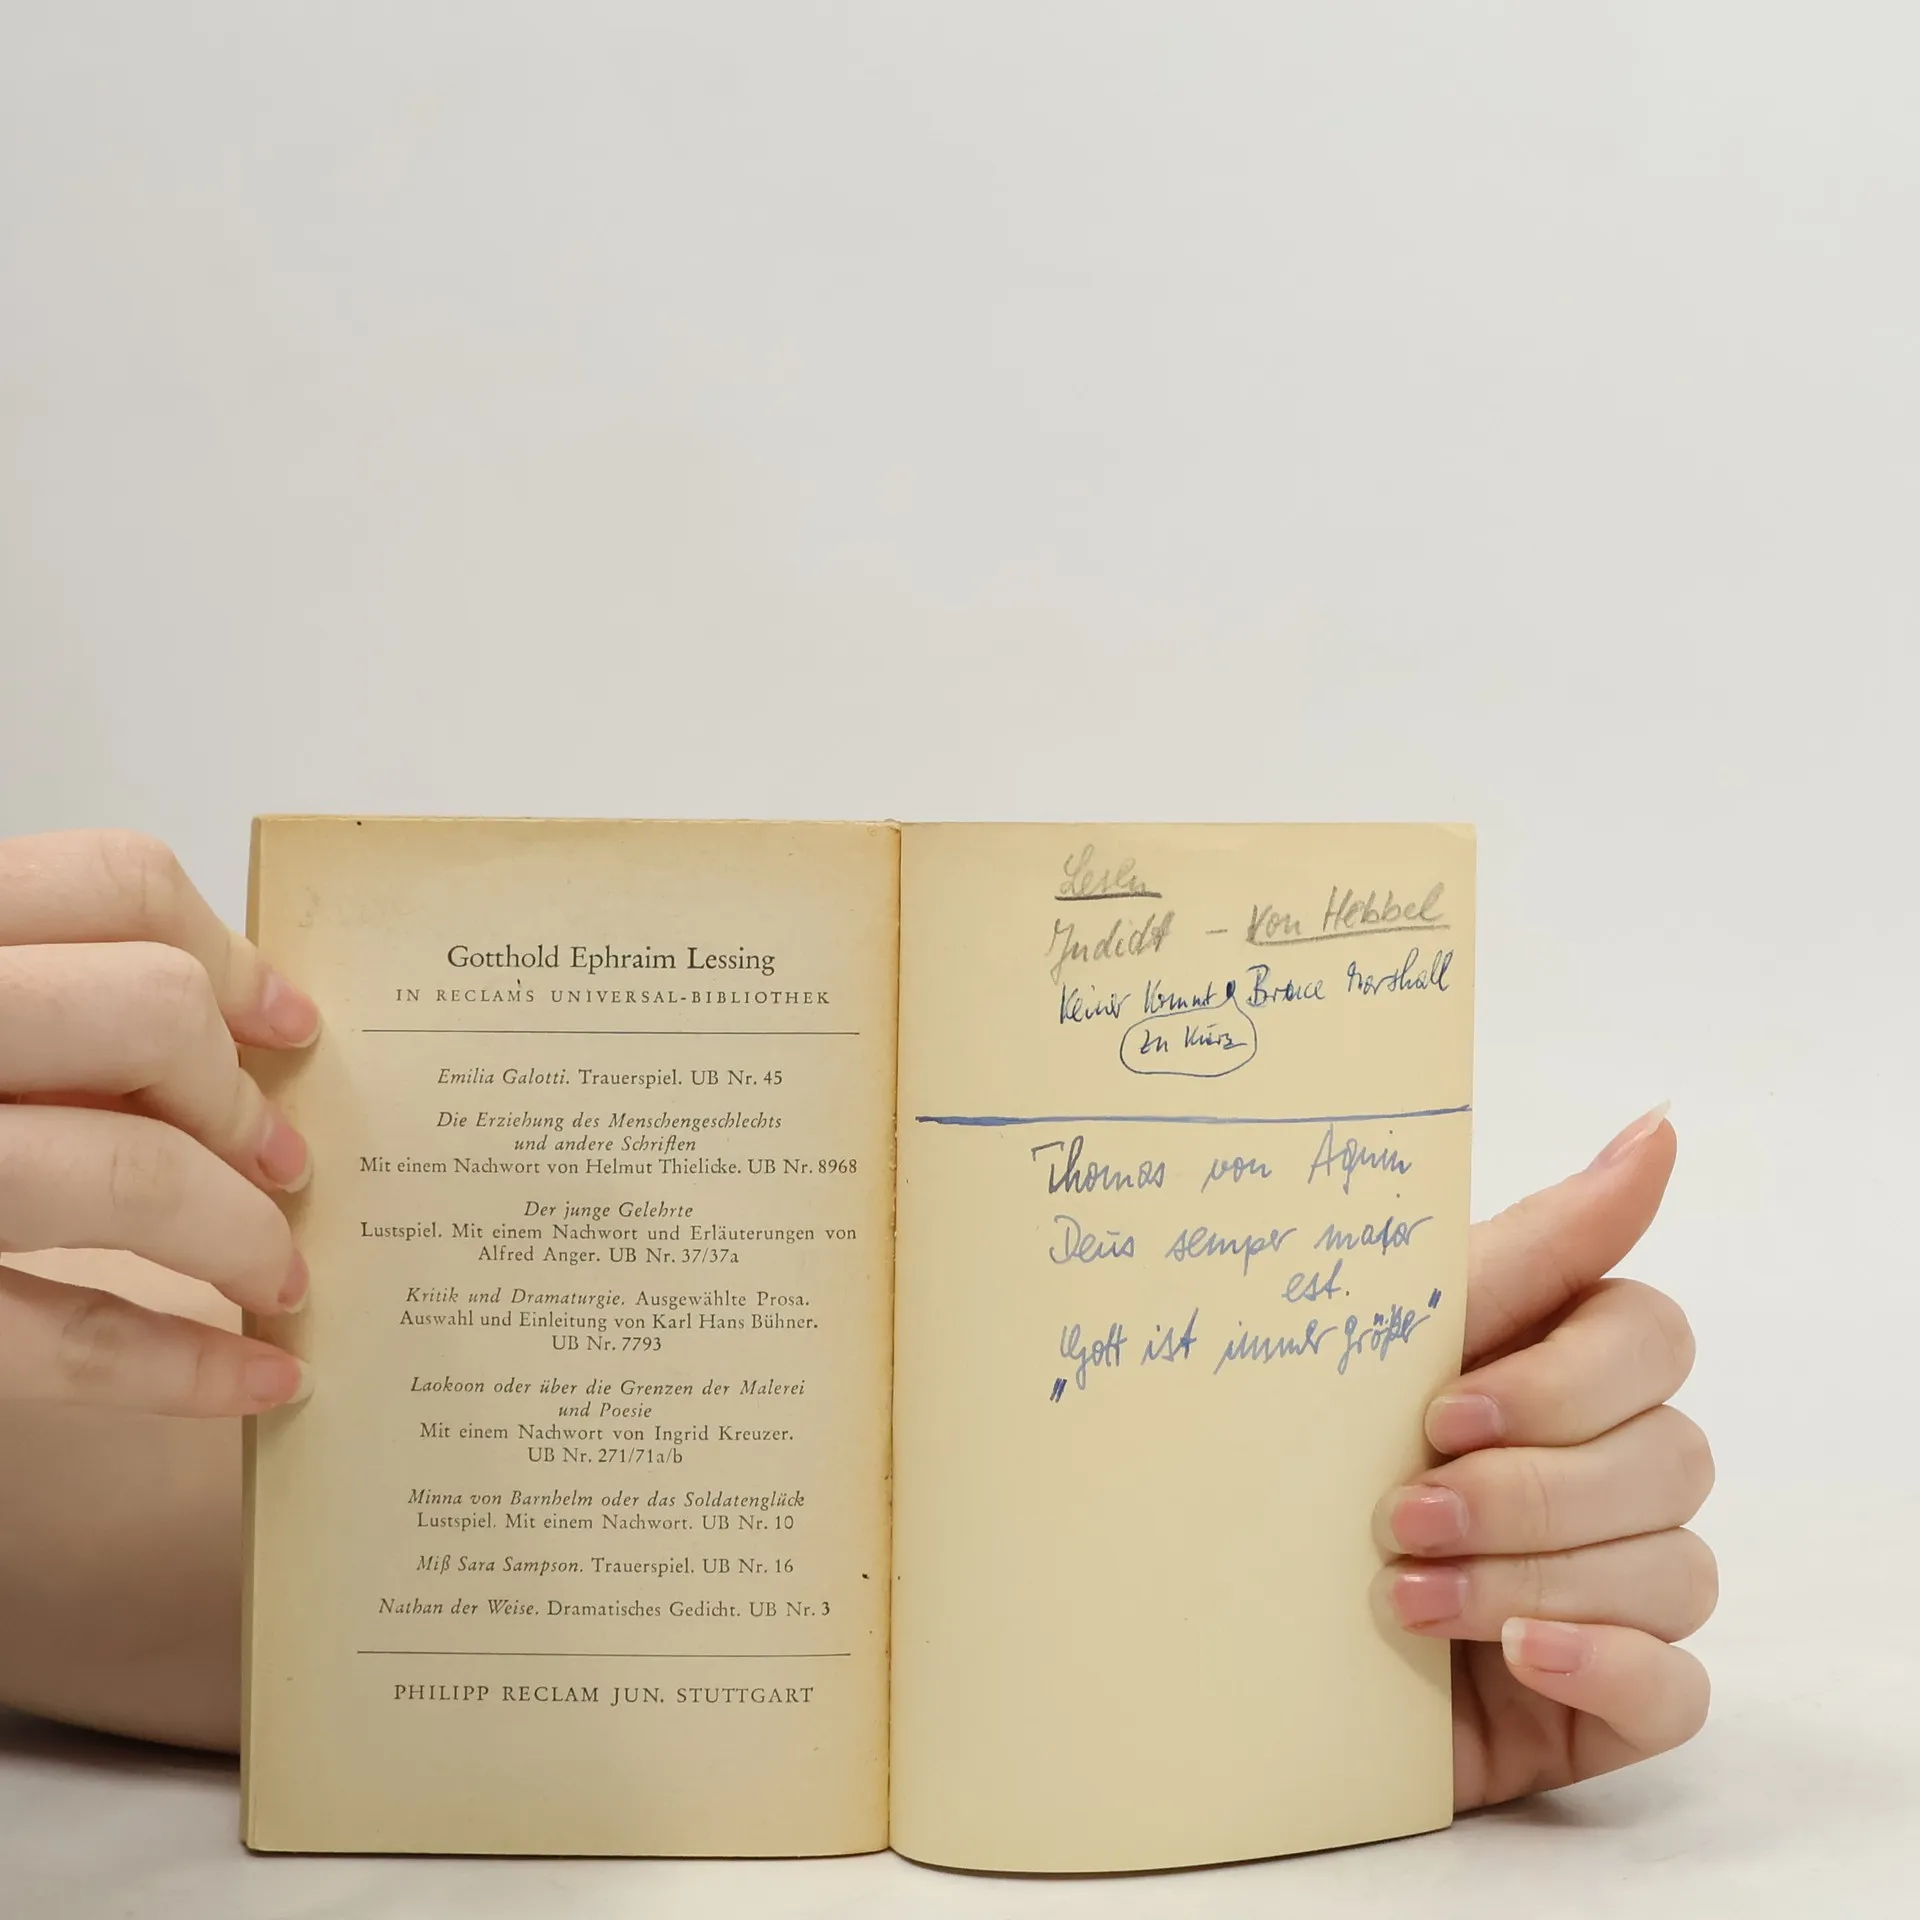 Gotthold Ephraim Lessing
IN RECLAMS UNIVERSAL-BIBLIOTHEK
Emilia Galotti. Trauerspiel. UB Nr. 45
Die Erziehung des Menschengeschlechts
und andere Schriften
Mit einem Nachwort von Helmut Thielicke. UB Nr. 8968
Der junge Gelehrte
Lustspiel. Mit einem Nachwort und Erläuterungen von
Alfred Anger. UB Nr. 37/37a
Kritik und Dramaturgie. Ausgewählte Prosa.
Auswahl und Einleitung von Karl Hans Bühner.
UB Nr. 7793
Laokoon oder über die Grenzen der Malerei
und Poesie
Mit einem Nachwort von Ingrid Kreuzer.
UB Nr. 271/71a/b
Minna von Barnhelm oder das Soldatenglück
Lustspiel. Mit einem Nachwort. UB Nr. 10
Miß Sara Sampson. Trauerspiel. UB Nr. 16
Nathan der Weise. Dramatisches Gedicht. UB Nr. 3
PHILIPP RECLAM JUN. STUTTGART
Lesen
Judidt – von Hebbel
Keiner kommt Bruce Marshall
zu kurz
Thomas von Aquin
Deus semper major
est.
„Gott ist immer größer"